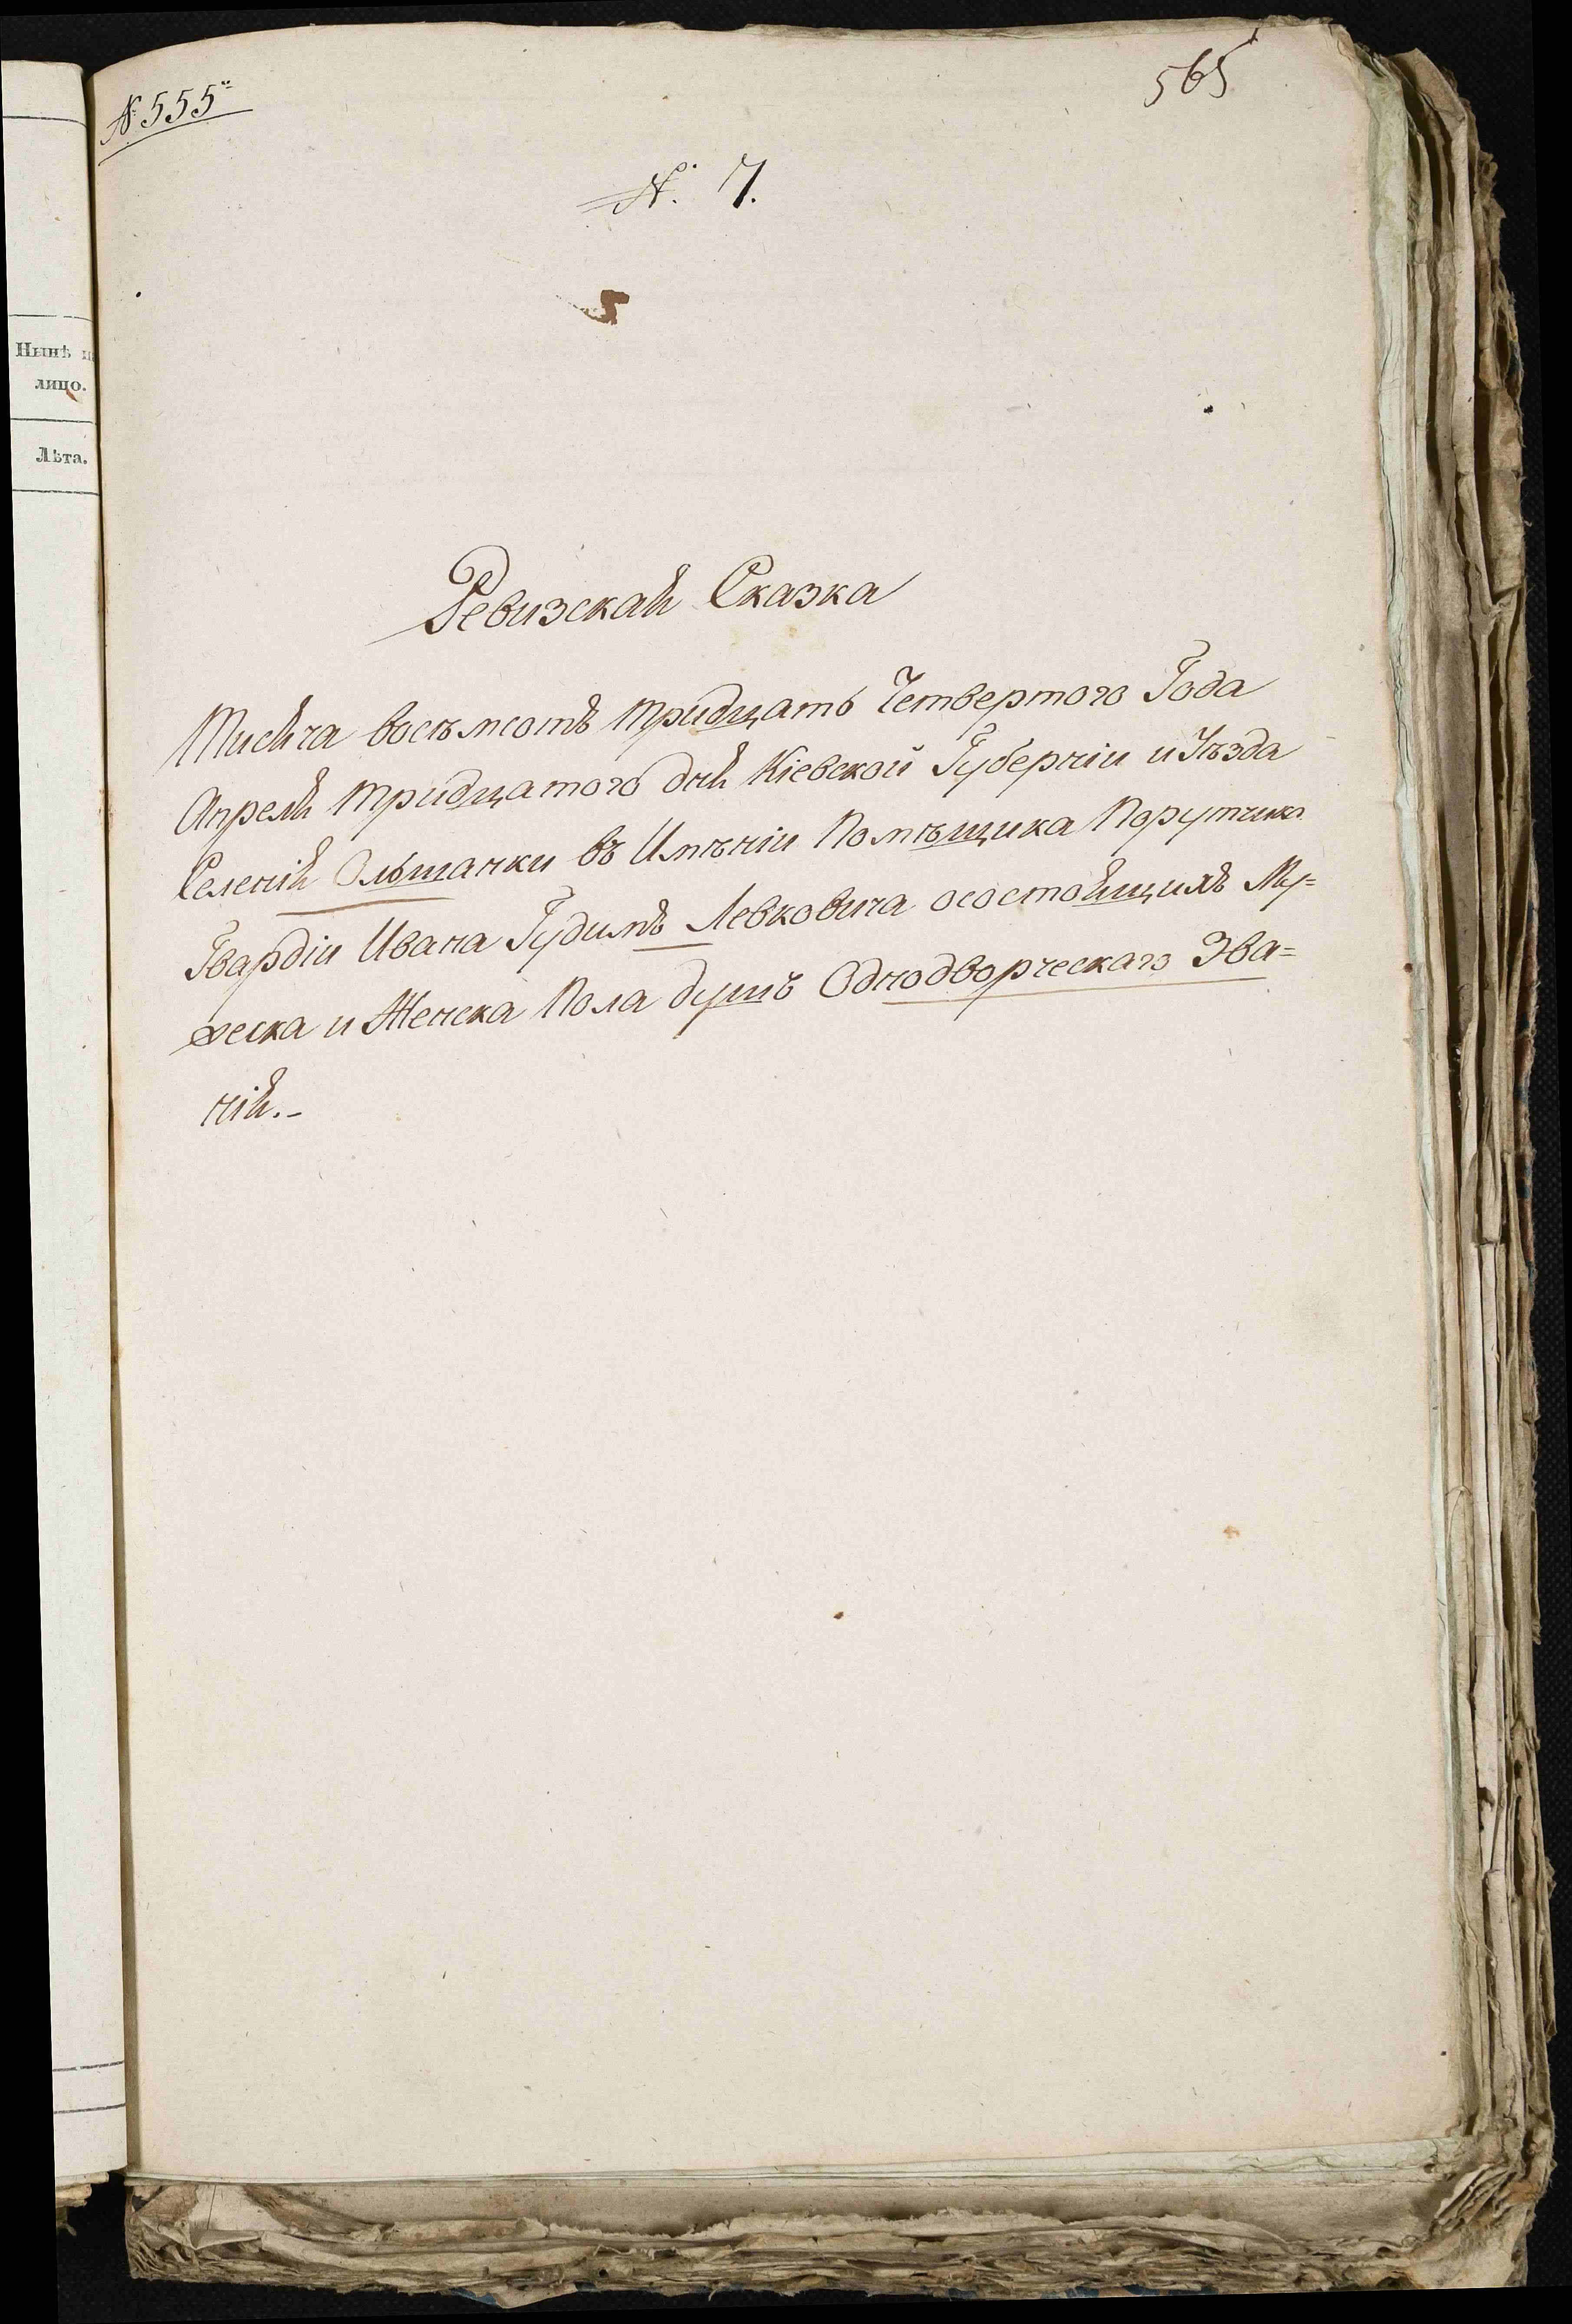 № 555.
565
№. 7.
Нынѣ
лицо.
Лѣта.
Ревизская Сказка
Тисяча восѣмсотъ тридцать Четвертого Года
Апреля тридцатого дня Кіевской Губерніи и Уѣзда
Селенія Ольшанки въ Имѣніи Помѣщика Порутчика
Гвардіи Ивана Гудимъ Левковича осостоящихъ Му=
жеска и Женска Пола душъ Однодворческаго Зва=
нія.-